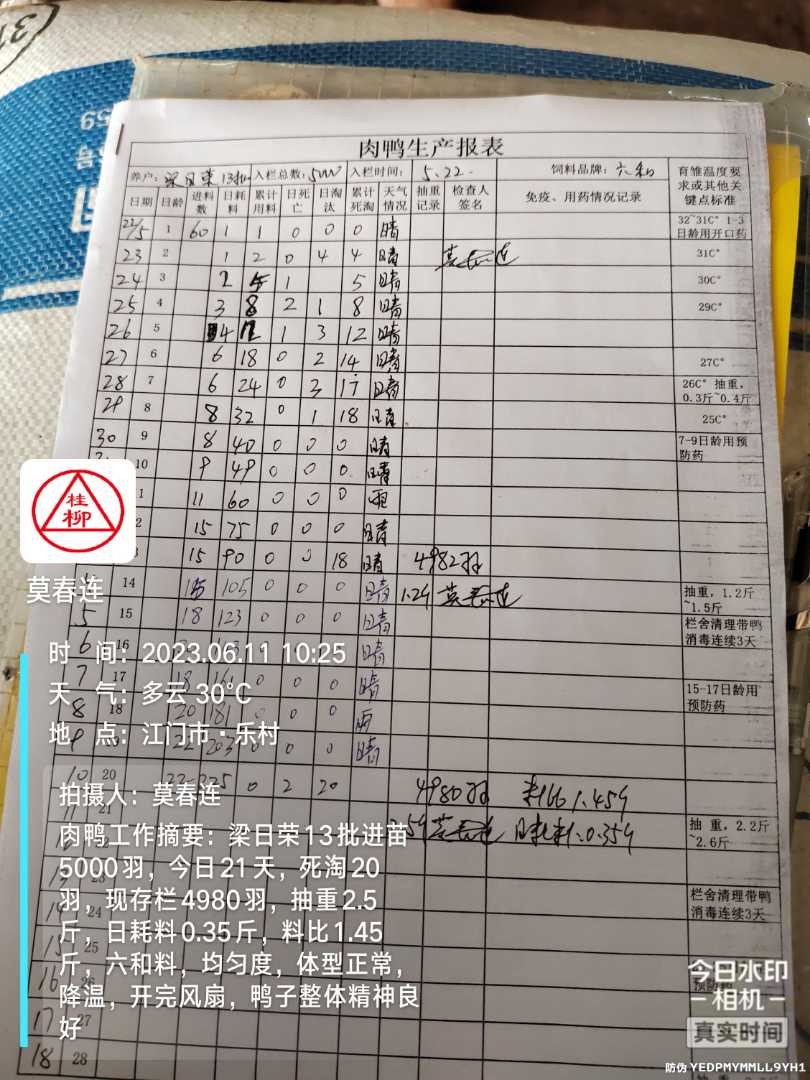 肉鸭生产报表
养户: 梁日荣 13批 入栏总数: 5000 入栏时间: 5.22 饲料品牌: 六和 育雏温度要求或其他关键点标准
日期 日龄 进料数 日耗料 累计用料 日死亡 日淘汰 累计死淘 天气情况 抽重记录 检查人签名 免疫、用药情况记录
22/5 1 60 1 1 0 0 0 晴 32~31C° 1-3日龄用开口药
23 2 1 2 0 4 4 晴 莫春连 31C°
24 3 2 5 1 5 晴 30C°
25 4 3 8 2 1 8 晴 29C°
26 5 4 12 1 3 12 晴
27 6 6 18 0 2 14 晴 27C°
28 7 6 24 0 3 17 晴 26C° 抽重,0.3斤~0.4斤
29 8 8 32 0 1 18 晴 25C°
30 9 8 40 0 0 0 晴 7-9日龄用预防药
10 9 49 0 0 0 晴
1 11 60 0 0 0 雨
2 15 75 0 0 0 晴
3 15 90 0 0 18 晴 4982羽
14 15 105 0 0 0 晴 1.24 莫春连 抽重,1.2斤~1.5斤
5 15 18 123 0 0 0 晴 栏舍清理带鸭消毒连续3天
6 16 0 0 晴
7 17 18 161 0 0 晴 15-17日龄用预防药
8 18 20 181 0 0 雨
9 22 203 0 0 晴
10 20 22 225 0 2 20 4980羽 料比1.459
21 莫春连 日耗料:0.359 抽重,2.2斤~2.6斤
13 23
14 24 栏舍清理带鸭消毒连续3天
15 25
16
17 27
18 28
桂柳
莫春连
时 间: 2023.06.11 10:25
天 气: 多云 30℃
地 点: 江门市·乐村
拍摄人: 莫春连
肉鸭工作摘要: 梁日荣13批进苗
5000羽,今日21天,死淘20
羽,现存栏4980羽,抽重2.5
斤,日耗料0.35斤,料比1.45
斤,六和料,均匀度,体型正常,
降温,开完风扇,鸭子整体精神良
好
今日水印
相机
真实时间
防伪 YEDPMYMMLL9YH1